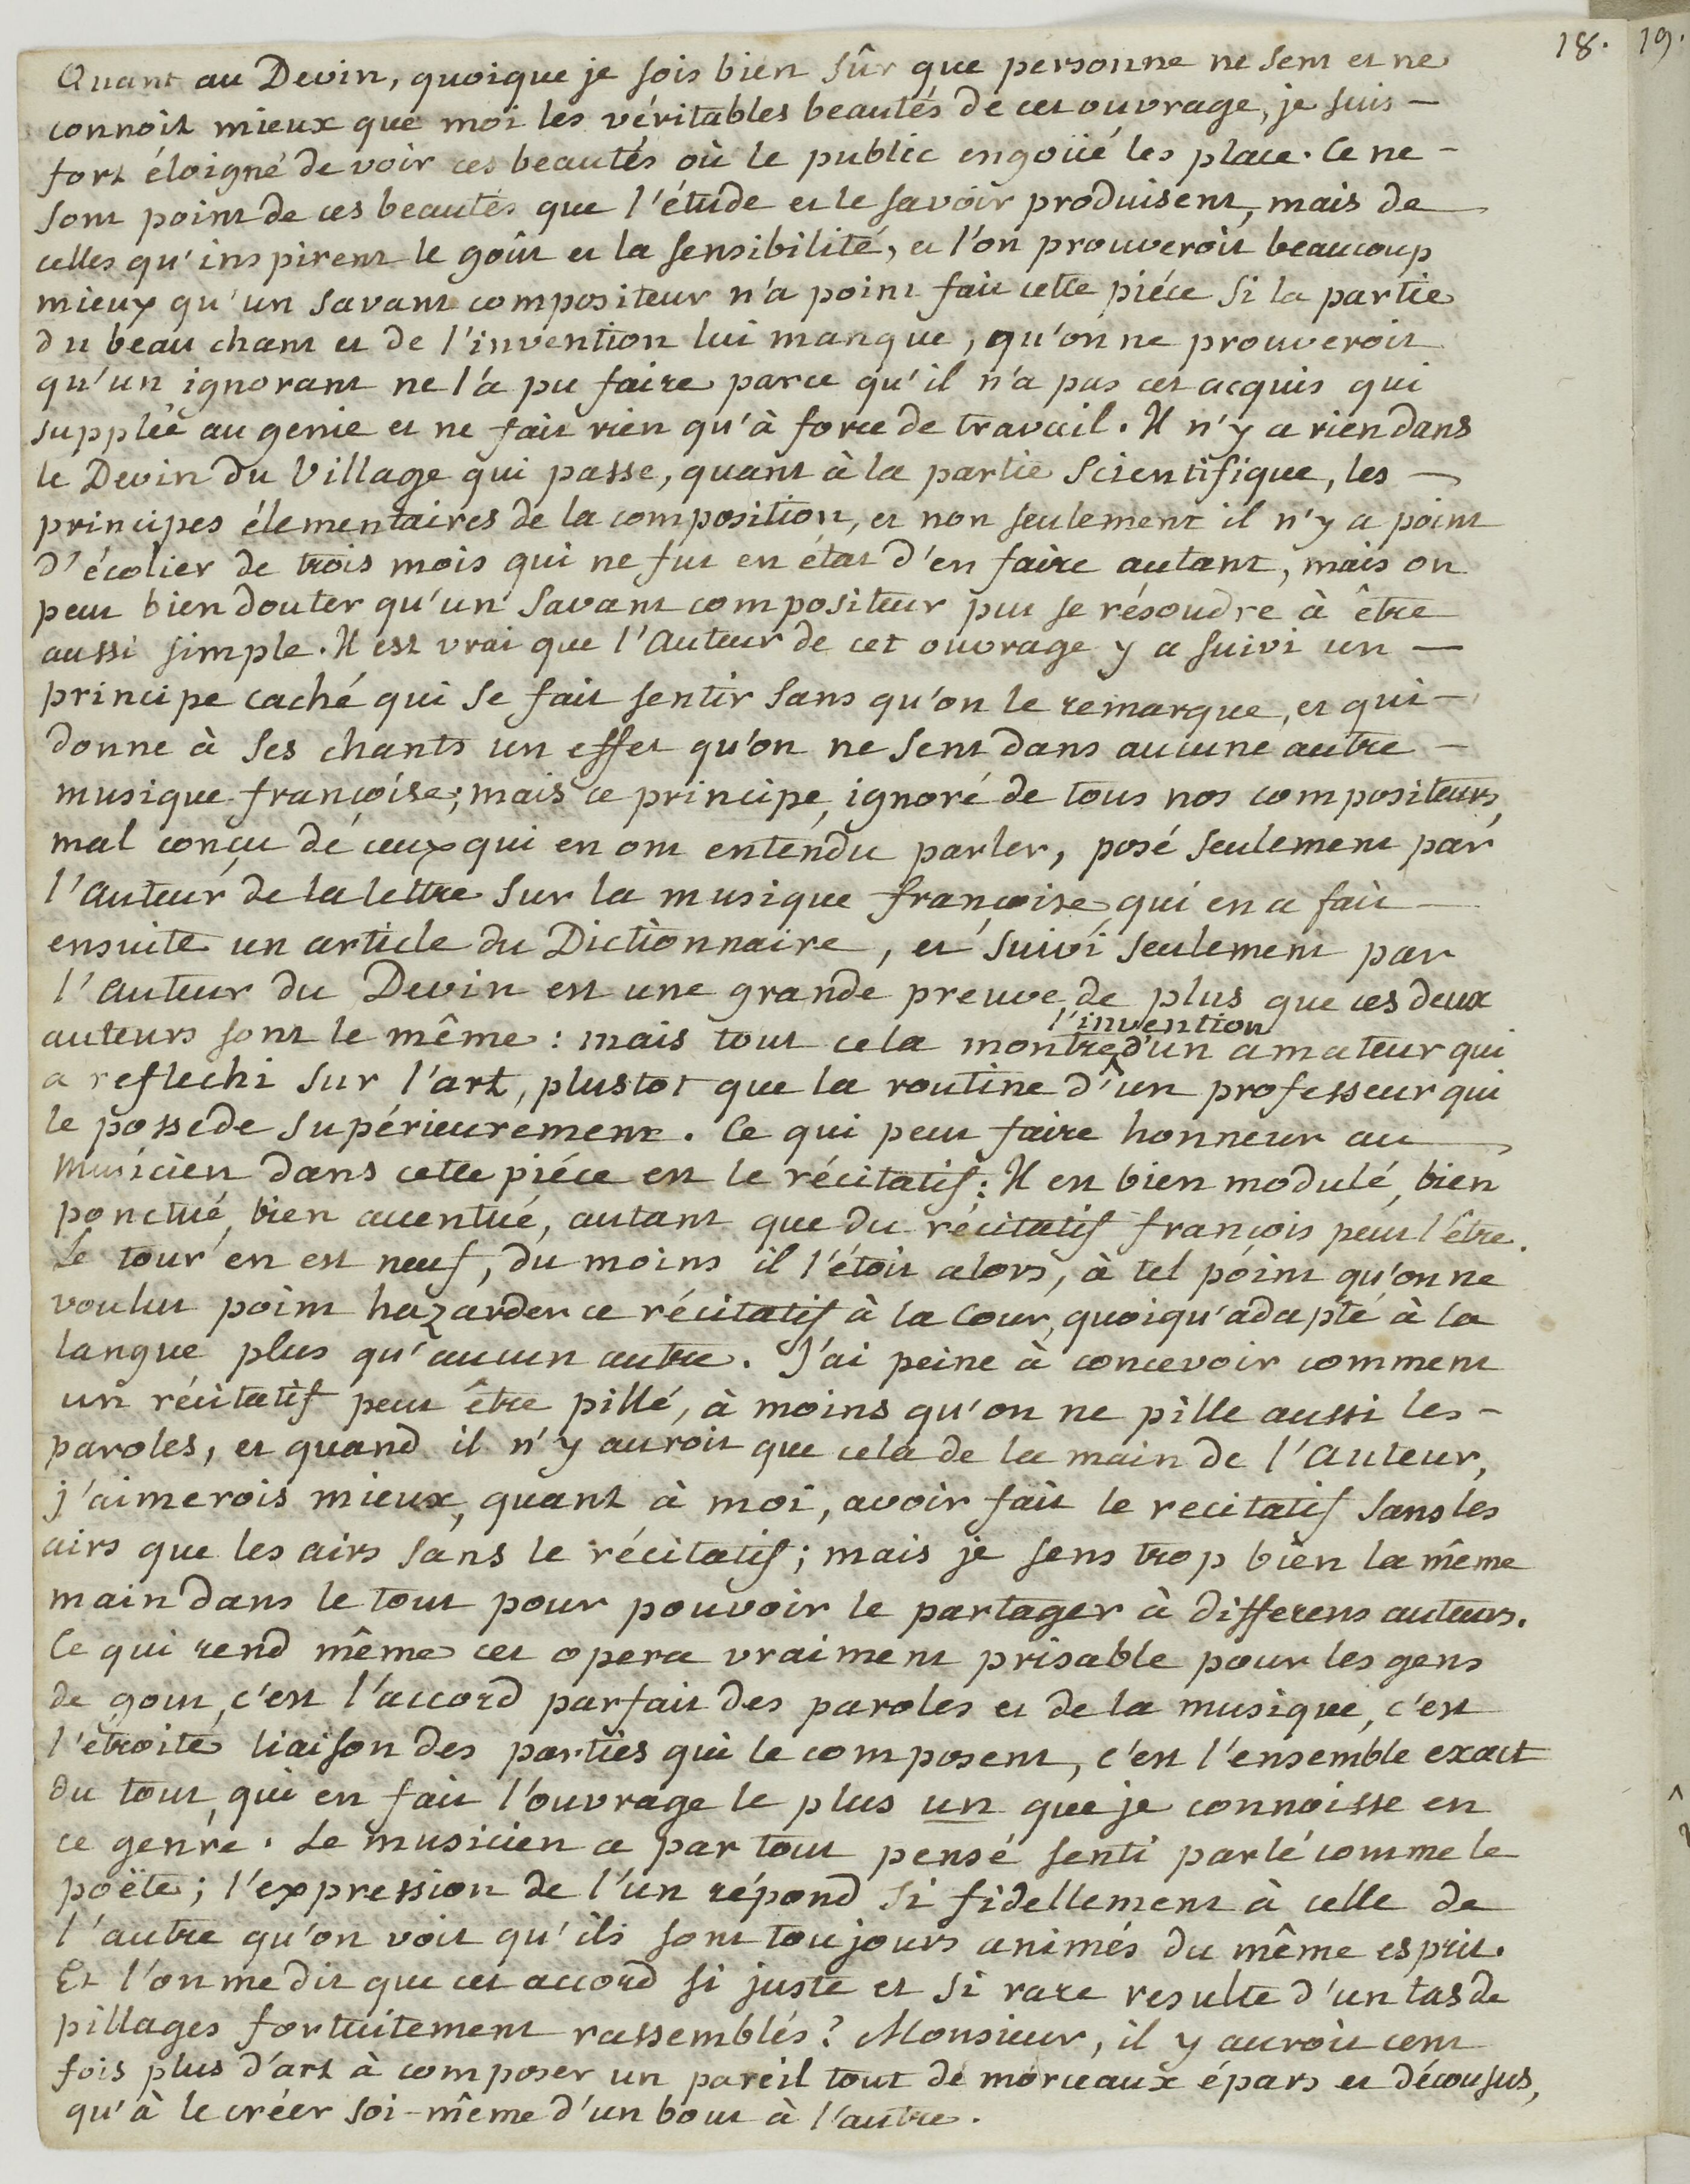 18. 19.
Quant au Devin, quoique je sois bien sûr que personne ne sent et ne
connoit mieux que moi les véritables beautés de cet ouvrage, je suis –
fort éloigné de voir ces beautés où le public engoüé les place. Ce ne –
sont point de ces beautés que l'étude et le savoir produisent, mais de
celles qu'inspirent le goût et la sensibilité, et l'on prouveroit beaucoup
mieux qu'un savant compositeur n'a point fait cette piéce si la partie
du beau chant et de l'invention lui manque, qu'on ne prouveroit
qu'un ignorant ne l'a pu faire parce qu'il n'a pas cet acquis qui
supplée au genie et ne fait rien qu'à force de travail. Il n'y a rien dans
le Devin du Village qui passe, quant à la partie scientifique, les –
principes élementaires de la composition, et non seulement il n'y a point
d'écolier de trois mois qui ne fut en état d'en faire autant, mais on
peut bien douter qu'un savant compositeur put se résoudre à être
aussi simple. Il est vrai que l'auteur de cet ouvrage y a suivi un –
principe caché qui se fait sentir sans qu'on le remarque, et qui –
donne à ses chants un effet qu'on ne sent dans aucune autre –
musique françoise; mais ce principe, ignoré de tous nos compositeurs,
mal conçu de ceux qui en ont entendu parler, posé seulement par
l'auteur de la lettre sur la musique françoise, qui en a fait –
ensuite un article du Dictionnaire, et suivi seulement par
l'auteur du Devin est une grande preuve de plus que ces deux
auteurs sont le même: mais tout cela montre l'invention d'un amateur qui
a reflechi sur l'art, plustot que la routine d'un professeur qui
le possede supérieurement. Ce qui peut faire honneur au
Musicien dans cette piéce est le récitatif: Il est bien modulé, bien
ponctué, bien accentué, autant que du récitatif françois peut l'être.
Le tour en est neuf, du moins il l'étoit alors, à tel point qu'on ne
voulut point hazarder ce récitatif à la Cour, quoiqu'adapté à la
langue plus qu'aucun autre. J'ai peine à concevoir comment
un récitatif peut être pillé, à moins qu'on ne pille aussi les –
paroles, et quand il n'y auroit que cela de la main de l'auteur,
j'aimerois mieux, quant à moi, avoir fait le recitatif sans les
airs que les airs sans le récitatif; mais je sens trop bien la même
main dans le tout pour pouvoir le partager à differens auteurs.
Ce qui rend même cet opera vraiment prisable pour les gens
de gout, c'est l'accord parfait des paroles et de la musique, c'est
l'étroite liaison des parties qui le composent, c'est l'ensemble exact
du tout, qui en fait l'ouvrage le plus un que je connoisse en
ce genre. Le musicien a par tout pensé senti parlé comme le
poëte; l'expression de l'un répond si fidellement à celle de
l'autre qu'on voit qu'ils sont toujours animés du même esprit.
Et l'on me dit que cet accord si juste et si rare resulte d'un tas de
pillages fortuitement rassemblés? Monsieur, il y auroit cent
fois plus d'art à composer un pareil tout de morceaux épars et décousus,
qu'à le créer soi-même d'un bout à l'autre.